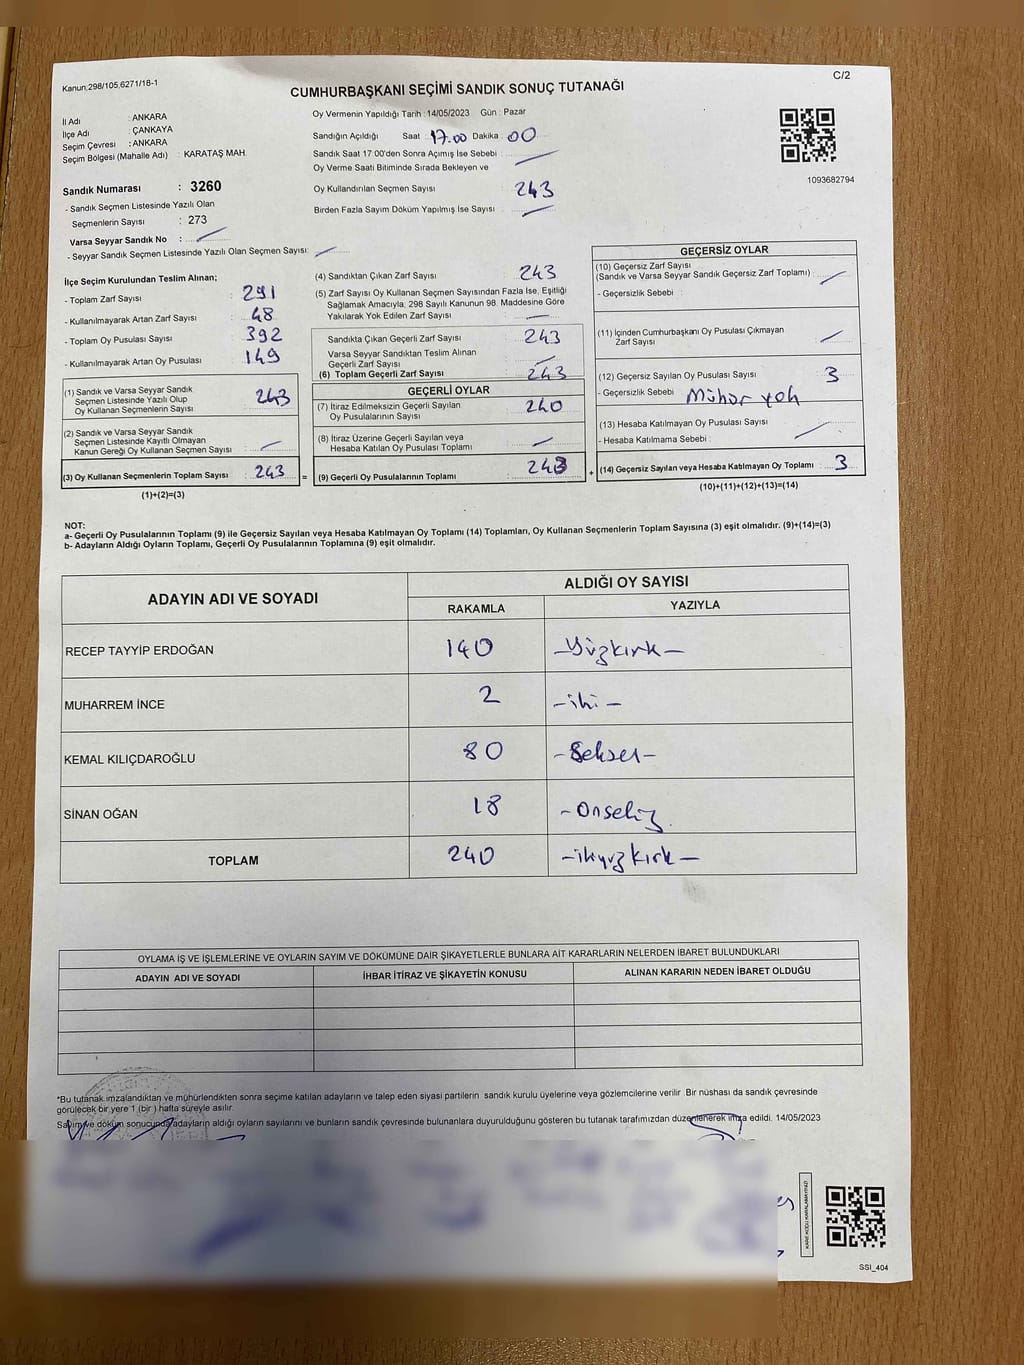 Kanun:298/105,6271/18-1
C/2
CUMHURBAŞKANI SEÇİMİ SANDIK SONUÇ TUTANAĞI
İl Adı : ANKARA
İlçe Adı : ÇANKAYA
Seçim Çevresi : ANKARA
Seçim Bölgesi (Mahalle Adı) : KARATAŞ MAH.
Sandık Numarası : 3260
- Sandık Seçmen Listesinde Yazılı Olan
Seçmenlerin Sayısı : 273
Varsa Seyyar Sandık No :
- Seyyar Sandık Seçmen Listesinde Yazılı Olan Seçmen Sayısı:
Oy Vermenin Yapıldığı Tarih : 14/05/2023 Gün : Pazar
Sandığın Açıldığı Saat : 17.00 Dakika : 00
Sandık Saat 17:00'den Sonra Açımış İse Sebebi :
Oy Verme Saati Bitiminde Sırada Bekleyen ve
Oy Kullandırılan Seçmen Sayısı : 243
Birden Fazla Sayım Döküm Yapılmış İse Sayısı :
1093682794
İlçe Seçim Kurulundan Teslim Alınan;
- Toplam Zarf Sayısı : 291
- Kullanılmayarak Artan Zarf Sayısı : 48
- Toplam Oy Pusulası Sayısı : 392
- Kullanılmayarak Artan Oy Pusulası : 149
(1) Sandık ve Varsa Seyyar Sandık
Seçmen Listesinde Yazılı Olup
Oy Kullanan Seçmenlerin Sayısı : 243
(2) Sandık ve Varsa Seyyar Sandık
Seçmen Listesinde Kayıtlı Olmayan
Kanun Gereği Oy Kullanan Seçmen Sayısı :
(3) Oy Kullanan Seçmenlerin Toplam Sayısı : 243
(1)+(2)=(3)
=
(4) Sandıktan Çıkan Zarf Sayısı : 243
(5) Zarf Sayısı Oy Kullanan Seçmen Sayısından Fazla İse, Eşitliği
Sağlamak Amacıyla; 298 Sayılı Kanunun 98. Maddesine Göre
Yakılarak Yok Edilen Zarf Sayısı :
Sandıkta Çıkan Geçerli Zarf Sayısı : 243
Varsa Seyyar Sandıktan Teslim Alınan
Geçerli Zarf Sayısı :
(6) Toplam Geçerli Zarf Sayısı : 243
GEÇERLİ OYLAR
(7) İtiraz Edilmeksizin Geçerli Sayılan
Oy Pusulalarının Sayısı : 240
(8) İtiraz Üzerine Geçerli Sayılan veya
Hesaba Katılan Oy Pusulası Toplamı :
(9) Geçerli Oy Pusulalarının Toplamı :
+
GEÇERSİZ OYLAR
(10) Geçersiz Zarf Sayısı
(Sandık ve Varsa Seyyar Sandık Geçersiz Zarf Toplamı) :
- Geçersizlik Sebebi :
(11) İçinden Cumhurbaşkanı Oy Pusulası Çıkmayan
Zarf Sayısı :
(12) Geçersiz Sayılan Oy Pusulası Sayısı : 3
- Geçersizlik Sebebi : Mühür yok
(13) Hesaba Katılmayan Oy Pusulası Sayısı :
- Hesaba Katılmama Sebebi :
(14) Geçersiz Sayılan veya Hesaba Katılmayan Oy Toplamı : 3
(10)+(11)+(12)+(13)=(14)
NOT:
a- Geçerli Oy Pusulalarının Toplamı (9) ile Geçersiz Sayılan veya Hesaba Katılmayan Oy Toplamı (14) Toplamları, Oy Kullanan Seçmenlerin Toplam Sayısına (3) eşit olmalıdır. (9)+(14)=(3)
b- Adayların Aldığı Oyların Toplamı, Geçerli Oy Pusulalarının Toplamına (9) eşit olmalıdır.
ADAYIN ADI VE SOYADI
ALDIĞI OY SAYISI
RAKAMLA YAZIYLA
RECEP TAYYİP ERDOĞAN 140 -Yüzkırk-
MUHARREM İNCE 2 -iki-
KEMAL KILIÇDAROĞLU 80 -Seksen-
SİNAN OĞAN 18 -Onsekiz
TOPLAM 240 -ikiyüzkırk-
OYLAMA İŞ VE İŞLEMLERİNE VE OYLARIN SAYIM VE DÖKÜMÜNE DAİR ŞİKAYETLERLE BUNLARA AİT KARARLARIN NELERDEN İBARET BULUNDUKLARI
ADAYIN ADI VE SOYADI İHBAR İTİRAZ VE ŞİKAYETİN KONUSU ALINAN KARARIN NEDEN İBARET OLDUĞU
*Bu tutanak imzalandıktan ve mühürlendikten sonra seçime katılan adayların ve talep eden siyasi partilerin sandık kurulu üyelerine veya gözlemcilerine verilir. Bir nüshası da sandık çevresinde
görülecek bir yere 1 (bir) hafta süreyle asılır.
Sayım ve döküm sonucunda adayların aldığı oyların sayılarını ve bunların sandık çevresinde bulunanlara duyurulduğunu gösteren bu tutanak tarafımızdan düzenlenerek imza edildi. 14/05/2023
KARE KODU KARALAMAYINIZ!
SSI_404